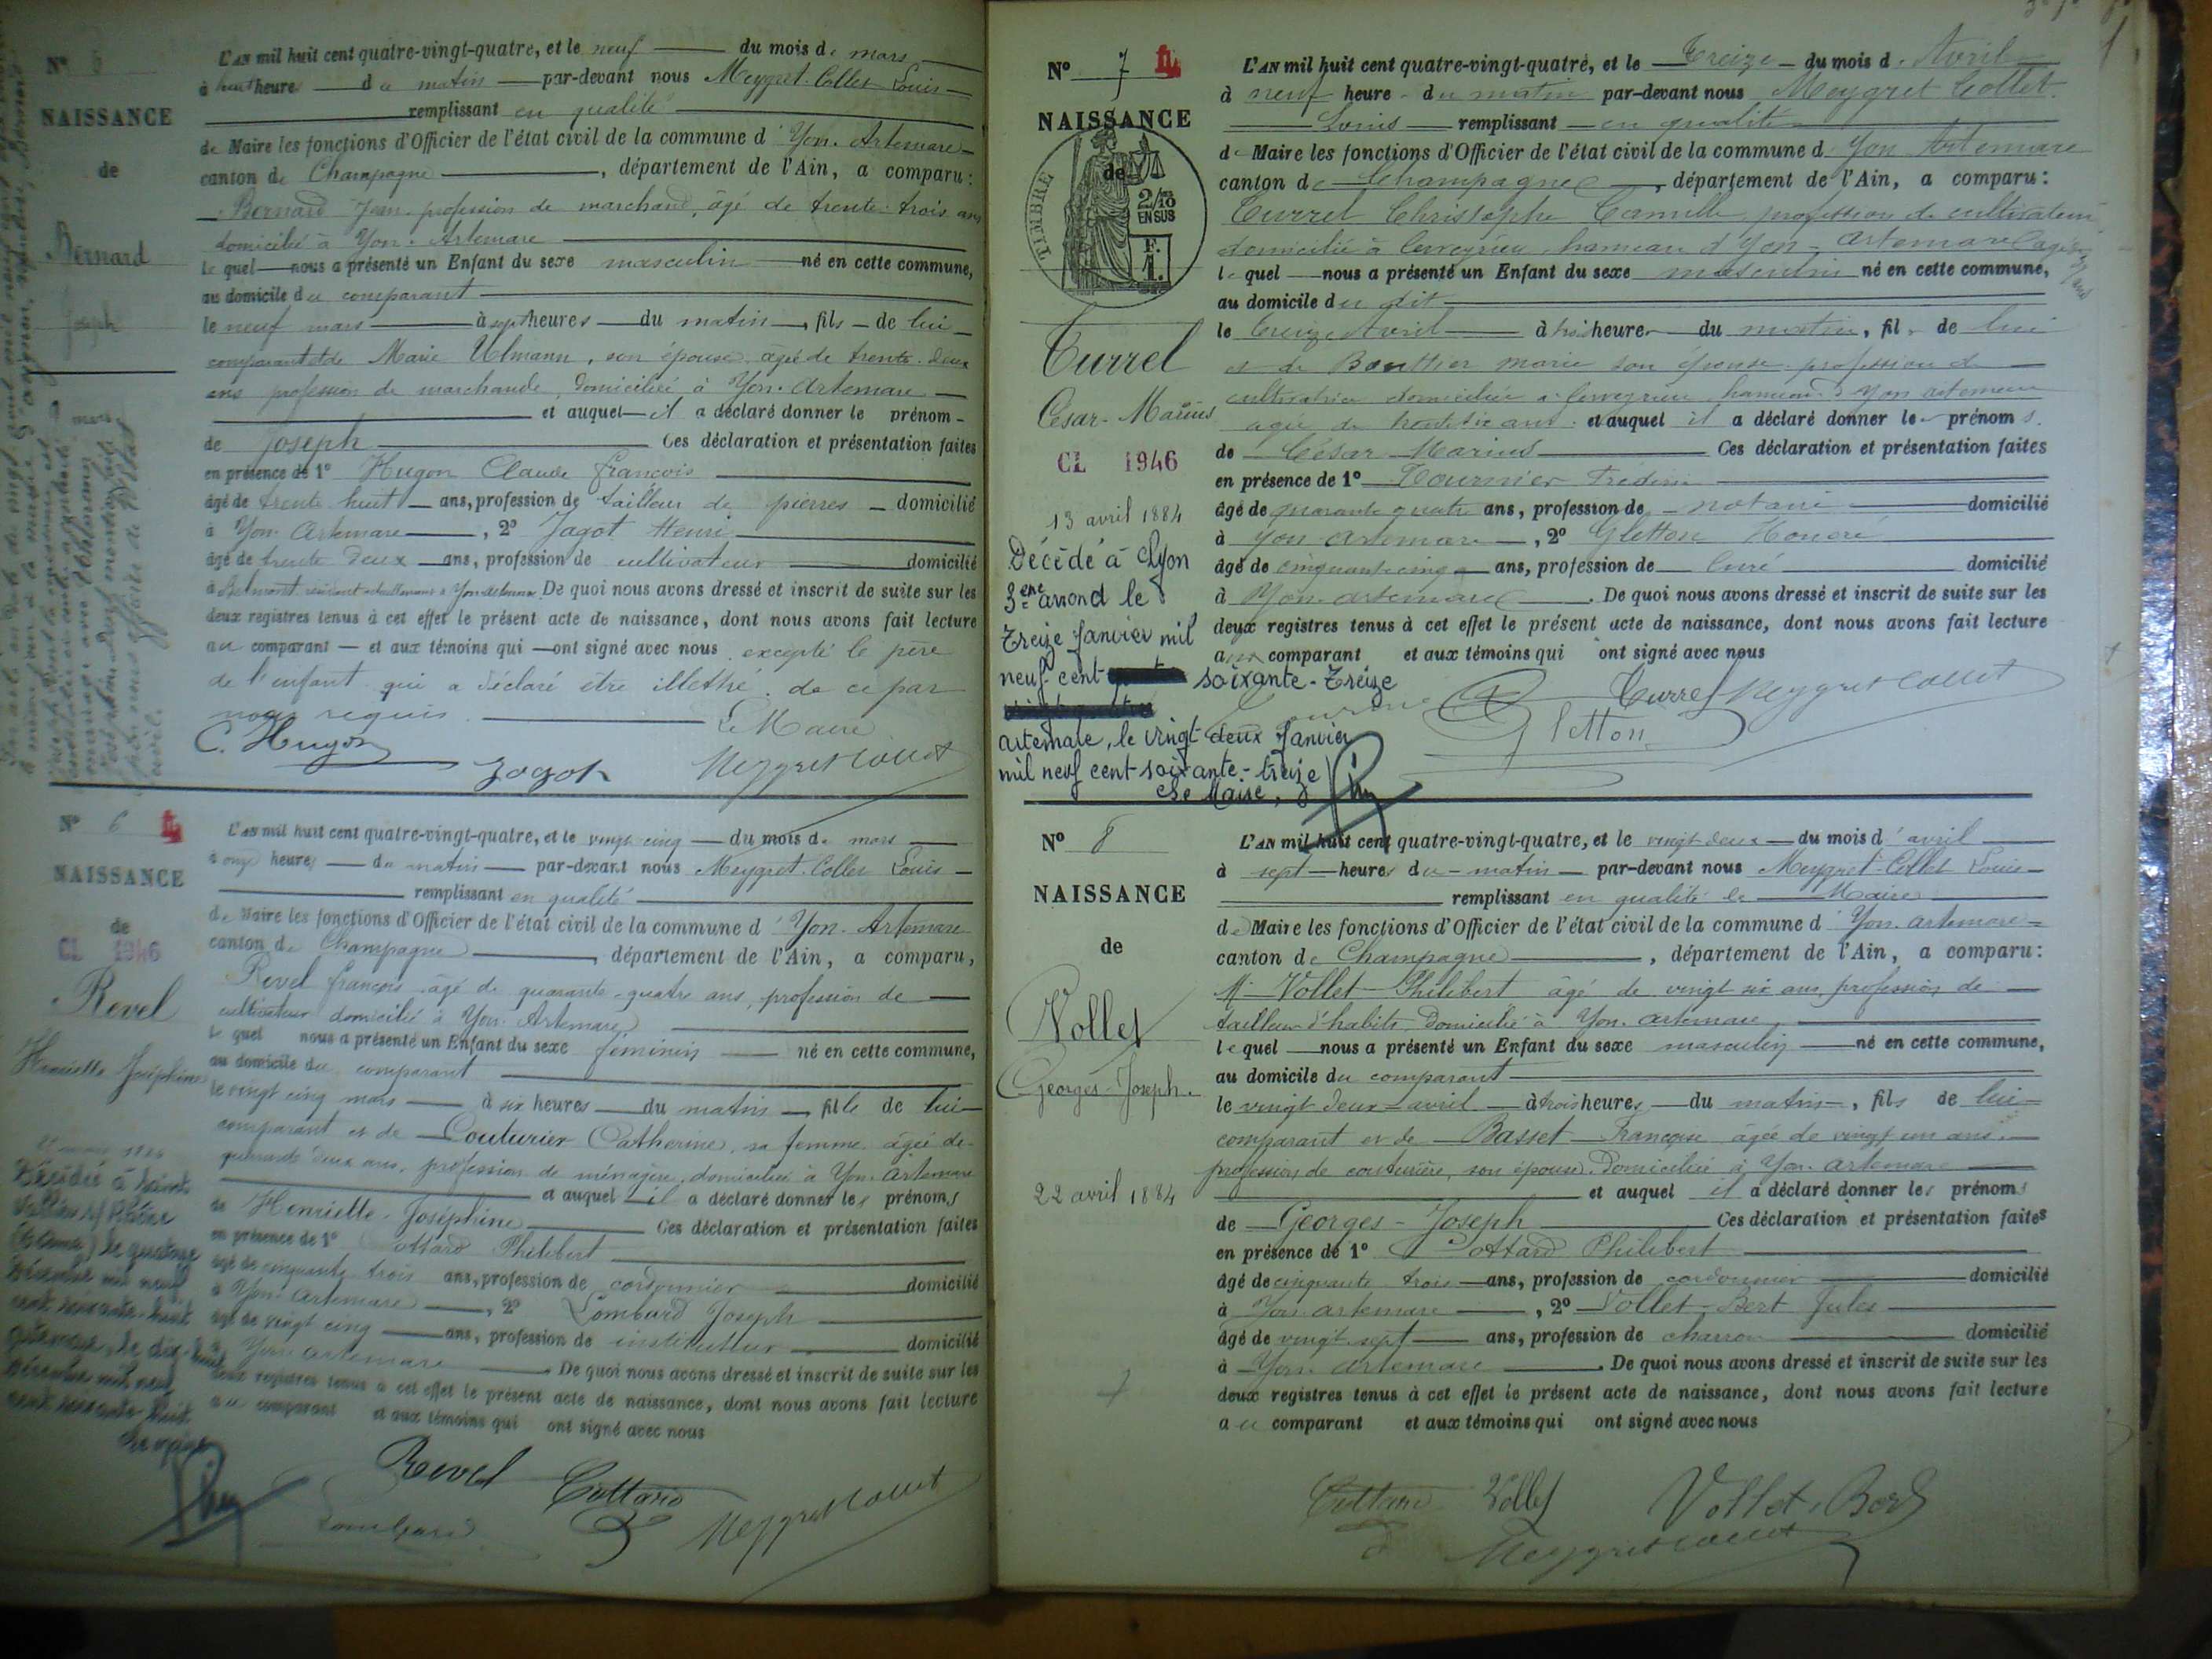 N° 5
NAISSANCE
de
Bernard
Joseph
L'AN mil huit cent quatre-vingt-quatre, et le neuf du mois de mars
à huit heures du matin par-devant nous Meygret-Collet Louis
remplissant en qualité
de Maire les fonctions d'Officier de l'état civil de la commune d'Yon-Artemare
canton de Champagne, département de l'Ain, a comparu:
Bernard Jean, profession de marchand, âgé de trente-trois ans
domicilié à Yon-Artemare
lequel nous a présenté un Enfant du sexe masculin né en cette commune,
au domicile du comparant
le neuf mars à sept heures du matin, fils de lui
comparant et de Marie Ulmann, son épouse âgée de trente-deux
ans profession de marchande, domiciliée à Yon-Artemare
et auquel il a déclaré donner le prénom
de Joseph Ces déclaration et présentation faites
en présence de 1° Hugon Claude françois
âgé de trente huit ans, profession de tailleur de pierres domicilié
à Yon Artemare, 2° Jagot Henri
âgé de trente deux ans, profession de cultivateur domicilié
à Belmont De quoi nous avons dressé et inscrit de suite sur les
deux registres tenus à cet effet le présent acte de naissance, dont nous avons fait lecture
au comparant et aux témoins qui ont signé avec nous excepté le père
de l'enfant qui a déclaré être illethé. de ce par
nous requis.
Le Maire
C. Hugon Jagot Meygret Collet
N° 6
NAISSANCE
de
CL 1946
Revel
Henriette Joséphine
Décédée à Saint
Vallier s/ Rhône
(Drôme) le quatorze
Décembre mil neuf
cent soixante-huit
Artemare, le dix-huit
Décembre mil neuf
cent soixante-huit
Le Maire
L'AN mil huit cent quatre-vingt-quatre, et le vingt-cinq du mois de mars
à onze heures du matin par-devant nous Meygret-Collet Louis
remplissant en qualité
de Maire les fonctions d'Officier de l'état civil de la commune d'Yon-Artemare
canton de Champagne, département de l'Ain, a comparu,
Revel françois âgé de quarante-quatre ans, profession de
cultivateur domicilié à Yon-Artemare
lequel nous a présenté un Enfant du sexe féminin né en cette commune,
au domicile du comparant
le vingt cinq mars à six heures du matin, fille de lui
comparant et de Couturier Catherine, sa femme âgée de
quarante deux ans, profession de ménagère domiciliée à Yon-Artemare
et auquel il a déclaré donner les prénoms
de Henriette Joséphine Ces déclaration et présentation faites
en présence de 1° Cottard Philibert
âgé de cinquante trois ans, profession de cordonnier domicilié
à Yon Artemare, 2° Lombard Joseph
âgé de vingt cinq ans, profession de instituteur domicilié
à Yon Artemare De quoi nous avons dressé et inscrit de suite sur les
deux registres tenus à cet effet le présent acte de naissance, dont nous avons fait lecture
au comparant et aux témoins qui ont signé avec nous
Revel Cottard
Lombard Meygret Collet
N° 7
NAISSANCE
de
TIMBRE
2/10
EN SUS
F.
1.
Turrel
César-Marius
CL 1946
13 avril 1884
Décédé à Lyon
3ème arrond le
Treize Janvier mil
neuf cent soixante-Treize
Artemare, le vingt-deux Janvier
mil neuf cent soixante-treize
Le Maire,
L'AN mil huit cent quatre-vingt-quatre, et le Treize du mois d'Avril
à neuf heure du matin par-devant nous Meygret Collet
Louis remplissant en qualité
de Maire les fonctions d'Officier de l'état civil de la commune d'Yon Artemare
canton de Champagne, département de l'Ain, a comparu:
Turrel Christophe Camille profession de cultivateur
domicilié à Cerveyrieu, hameau d'Yon-Artemare âgé
lequel nous a présenté un Enfant du sexe masculin né en cette commune,
au domicile du dit
le treize Avril à trois heures du matin, fils de lui
et de Bouthier marie son épouse profession de
cultivatrice domiciliée à Cerveyrieu, hameau d'Yon artemare
agée de ans et auquel il a déclaré donner le prénoms.
de César Marius Ces déclaration et présentation faites
en présence de 1° Tournier
âgé de quarante quatre ans, profession de notaire domicilié
à Yon artemare, 2° Gletton Honoré
âgé de cinquante cinq ans, profession de Curé domicilié
à Yon-artemare. De quoi nous avons dressé et inscrit de suite sur les
deux registres tenus à cet effet le présent acte de naissance, dont nous avons fait lecture
au comparant et aux témoins qui ont signé avec nous
Turrel Meygret Collet
Gletton
N° 8
NAISSANCE
de
Vollet
Georges-Joseph.
22 avril 1884
L'AN mil huit cent quatre-vingt-quatre, et le vingt-deux du mois d'avril
à sept heures du matin par-devant nous Meygret-Collet Louis
remplissant en qualité de Maire
de Maire les fonctions d'Officier de l'état civil de la commune d'Yon-artemare
canton de Champagne, département de l'Ain, a comparu:
Mr Vollet Philibert âgé de vingt six ans profession de
tailleur d'habits, Domicilié à Yon-artemare
lequel nous a présenté un Enfant du sexe masculin né en cette commune,
au domicile du comparant
le vingt deux avril à trois heures du matin, fils de lui
comparant et de Basset Françoise âgée de vingt un ans
profession de couturière, son épouse Domiciliée à Yon-artemare
et auquel il a déclaré donner les prénoms
de Georges-Joseph Ces déclaration et présentation faites
en présence de 1° Cottard Philibert
âgé de cinquante trois ans, profession de cordonnier domicilié
à Yon artemare, 2° Vollet-Bert Jules
âgé de vingt-sept ans, profession de charron domicilié
à Yon-artemare. De quoi nous avons dressé et inscrit de suite sur les
deux registres tenus à cet effet le présent acte de naissance, dont nous avons fait lecture
au comparant et aux témoins qui ont signé avec nous
Cottard Vollet Vollet-Bert
Meygret Collet